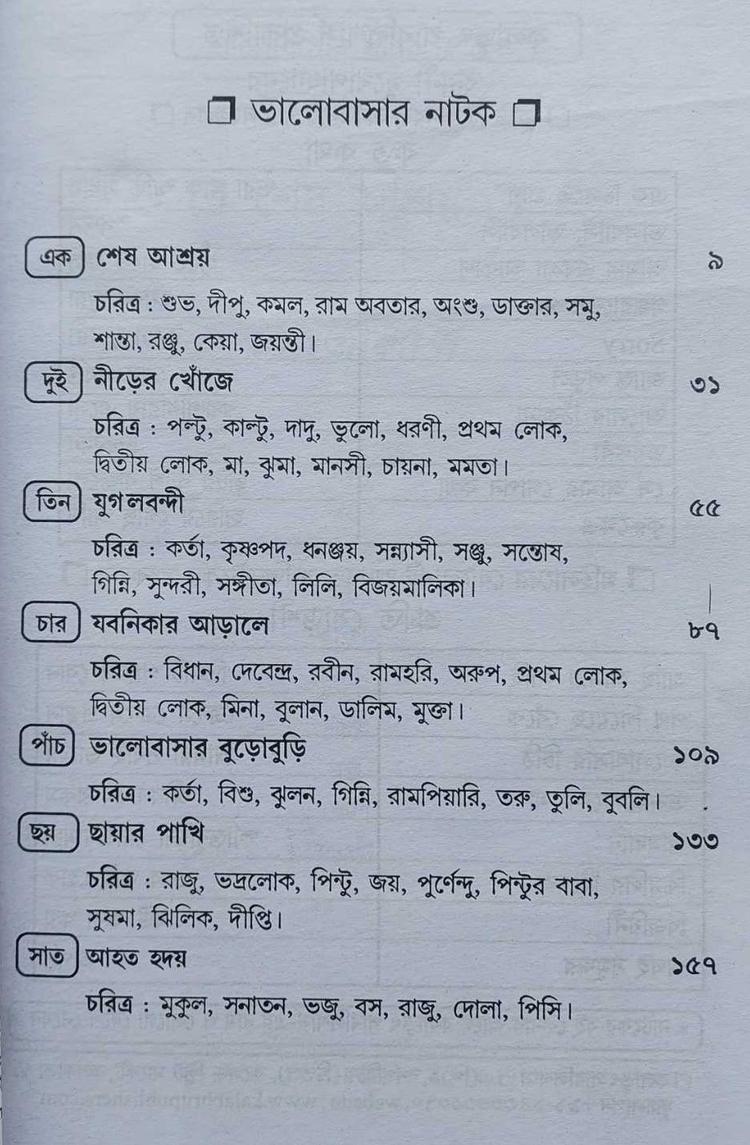 ভালোবাসার নাটক
এক শেষ আশ্রয় ৯
চরিত্র : শুভ, দীপু, কমল, রাম অবতার, অংশু, ডাক্তার, সমু,
শান্তা, রঞ্জু, কেয়া, জয়ন্তী।
দুই নীড়ের খোঁজে ৩১
চরিত্র : পল্টু, কাল্টু, দাদু, ভুলো, ধরণী, প্রথম লোক,
দ্বিতীয় লোক, মা, ঝুমা, মানসী, চায়না, মমতা।
তিন যুগলবন্দী ৫৫
চরিত্র : কর্তা, কৃষ্ণপদ, ধনঞ্জয়, সন্ন্যাসী, সঞ্জু, সন্তোষ,
গিন্নি, সুন্দরী, সঙ্গীতা, লিলি, বিজয়মালিকা।
চার যবনিকার আড়ালে ৮৭
চরিত্র : বিধান, দেবেন্দ্র, রবীন, রামহরি, অরুপ, প্রথম লোক,
দ্বিতীয় লোক, মিনা, বুলান, ডালিম, মুক্তা।
পাঁচ ভালোবাসার বুড়োবুড়ি ১০৯
চরিত্র : কর্তা, বিশু, ঝুলন, গিন্নি, রামপিয়ারি, তরু, তুলি, বুবলি।
ছয় ছায়ার পাখি ১৩৩
চরিত্র : রাজু, ভদ্রলোক, পিন্টু, জয়, পুর্ণেন্দু, পিন্টুর বাবা,
সুষমা, ঝিলিক, দীপ্তি।
সাত আহত হৃদয় ১৫৭
চরিত্র : মুকুল, সনাতন, ভজু, বস, রাজু, দোলা, পিসি।